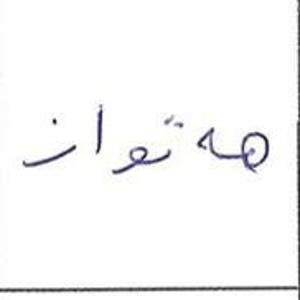 هەتواز